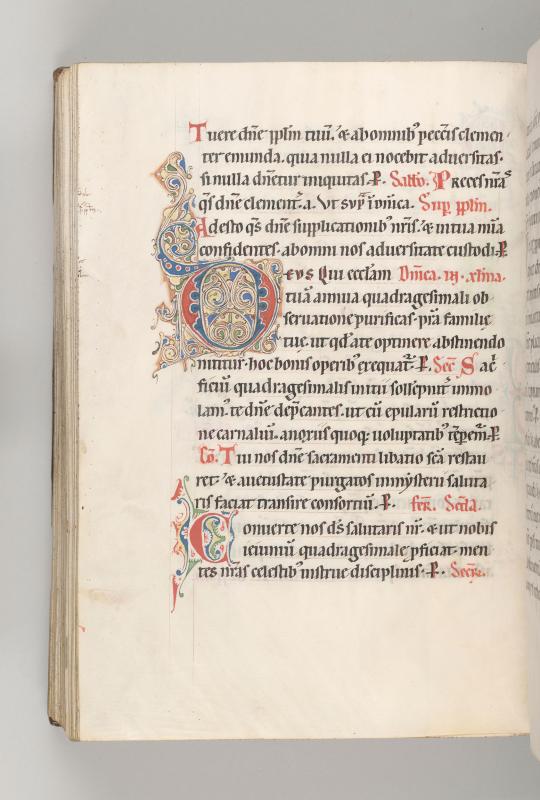 Tuere dñe pplm tuũ. & ab omnib' peccis clemen
ter emunda. quia nulla ei nocebit aduersitas.
si nulla dñetur iniquitas. P. Sabbo. Preces nr̃as
qs̃ dñe clement̃. a. Ut supra in dñica. Sup pplm.
Adesto qs̃ dñe supplicationib' nrĩs. & in tua mĩa
confidentes. ab omni nos aduersitate custodi. P
Deus Qui eccl̃am Dñica. iiij. xlma.
tuã annua quadragesimali ob
seruatione purificas. p̃ra familie
tue. ut qd̃ a te optinere abstinendo
nititur. hoc bonis operib' exequat̃. P. Sec̃ Sac̃
ficiũ quadragesimalis initii sollẽpnit̃ immo
lam'. te dñe dep̃cantes. ut cũ epularũ restrictio
ne carnaliũ. a noxiis quoq; uoluptatib' tẽpem̃. P.
Cõ. Tui nos dñe sacramenti libatio sc̃a restau
ret. & a uetustate purgatos in mysterii saluta
ris faciat transire consortiũ. P. fer̃. Sc̃da.
Conuerte nos ds̃ salutaris nr̃. & ut nobis
ieiuniũ quadragesimale pficiat. men
tes nr̃as celestib' instrue disciplinis. P. Secr̃.